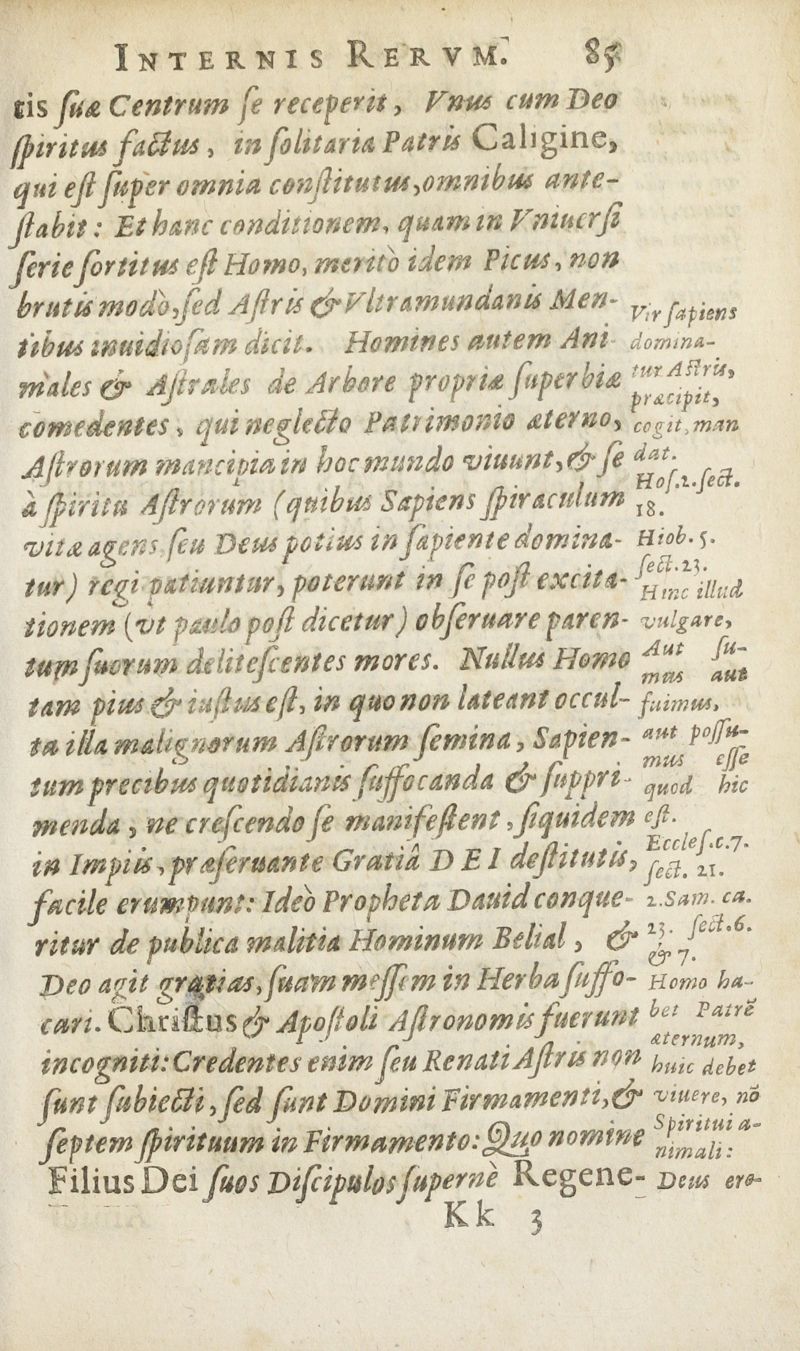 INTERNIS RERVM. 85
tis suæ Centrum se receperit, Vnus cum Deo
spiritus factus, in solitaria Patris Caligine,
qui est super omnia constitutus, omnibus ante-
stabit: Et hanc conditionem, quam in Vniuersi
serie sortitus est Homo, meritò idem Picus, non
brutis modò, sed Astris & Vltramundanis Men-
tibus inuidiosam dicit. Homines autem Ani-
males & Astrales de Arbore propriæ superbiæ
comedentes, qui neglecto Patrimonio æterno,
Astrorum mancipia in hoc mundo viuunt, & se
à spiritu Astrorum (quibus Sapiens spiraculum
vitæ agens seu Deus potius in sapiente domina-
tur) regi patiuntur, poterunt in se post excita-
tionem (vt paulo post dicetur) obseruare paren-
tum suorum delitescentes mores. Nullus Homo
tam pius & iustus est, in quo non lateant occul-
ta illa malignorum Astrorum semina, Sapien-
tum precibus quotidianis suffocanda & suppri-
menda, ne crescendo se manifestent, siquidem
in Impiis, præseruante Gratiâ DEI destitutis,
facile erumpunt: Ideò Propheta Dauid conque-
ritur de publica malitia Hominum Belial, &
Deo agit gratias, suam messem in Herba suffo-
cari. Christus & Apostoli Astronomis fuerunt
incogniti: Credentes enim seu Renati Astris non
sunt subiecti, sed sunt Domini Firmamenti, &
septem spirituum in Firmamento: Quo nomine
Filius Dei suos Discipulos supernè Regene-
Kk 3
Vir sapiens
domina-
tur Astris,
præcipit,
cogit, man
dat.
Hos. 2. sect.
18.
Hiob. 5.
sect. 23.
Hinc illud
vulgare,
Aut su-
mus aut
fuimus,
aut possu-
mus esse
quod hic
est.
Eccles. c. 7.
sect. 21.
2. Sam. ca.
23. sect. 6.
& 7.
Homo ha-
bet Patrē
æternum,
huic debet
viuere, nō
Spiritui a-
nimali:
Deus ero-